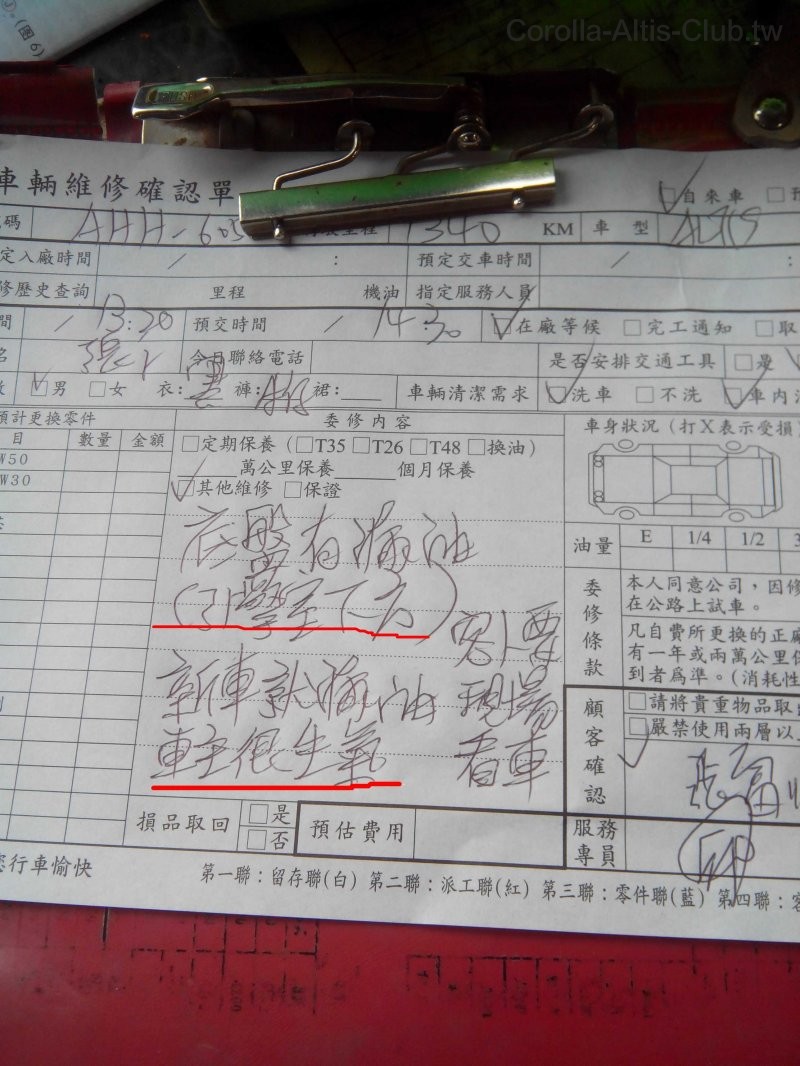 (圖6)
Corolla-Altis-Club.tw
車輛維修確認單
□自來車 □預
碼 AHH-605 1340 KM 車型 ALTIS
定入廠時間 / : 預定交車時間 / :
修歷史查詢 里程 機油 指定服務人員
間 / 13:30 預交時間 / 14:30 □在廠等候 □完工通知 □取
名 今日聯絡電話 是否安排交通工具 □是
□男 □女 衣: 褲: 裙:___ 車輛清潔需求 □洗車 □不洗 □車內清
預計更換零件 委修內容 車身狀況(打X表示受損)
目 數量 金額 □定期保養(□T35 □T26 □T48 □換油)
W50 ___萬公里保養___個月保養
W30 □其他維修 □保證
底盤有漏油
油量 E 1/4 1/2 3
(引擎室下方)
委修條款
本人同意公司,因修
在公路上試車。
凡自費所更換的正廠
有一年或兩萬公里保
到者為準。(消耗性
新車就漏油 現場
車主很生氣 看車
顧客確認
□請將貴重物品取出
□嚴禁使用兩層以上
損品取回 □是 □否 預估費用 服務專員
您行車愉快
第一聯:留存聯(白) 第二聯:派工聯(紅) 第三聯:零件聯(藍) 第四聯:客